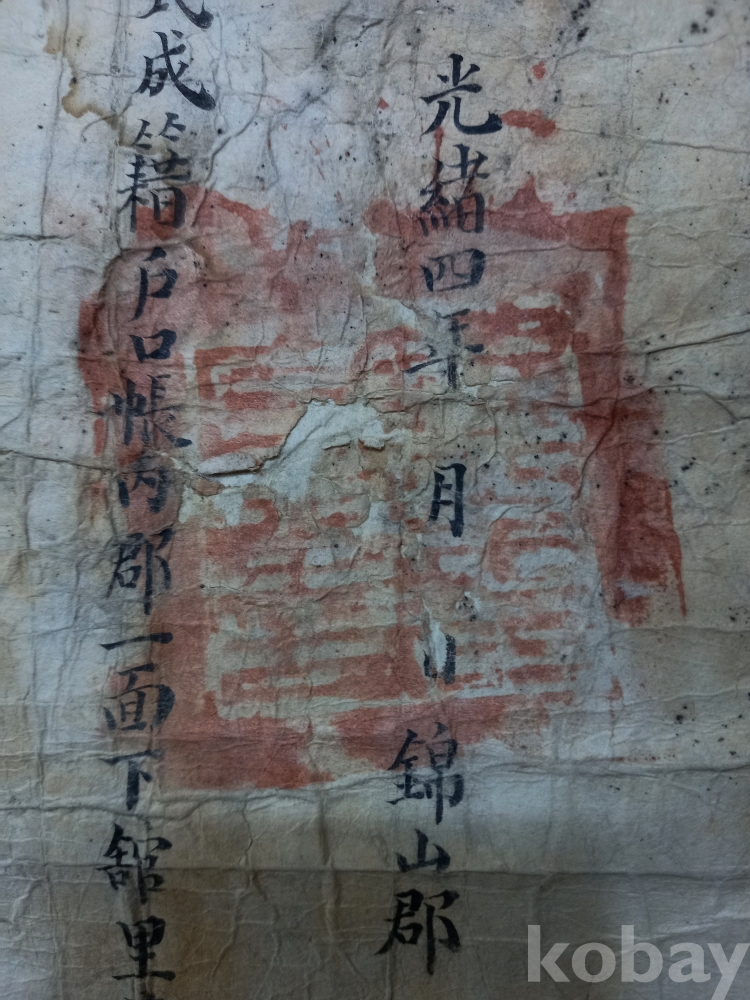 光緖四年 月 日錦山郡
式成籍戶口帳內郡一面下舘里
kobay